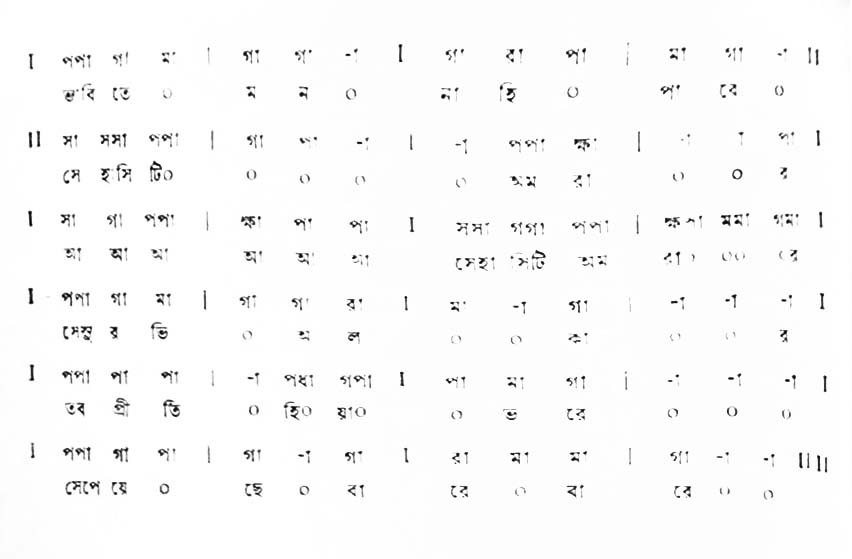 I পপা গা মা | গা গা -া I গা রা পা | মা গা -া II
ভাবি তে ০ ম ন ০ না হি ০ পা রে ০
II সা সসা পপা | গা পা -া I -া পপা ক্ষা | -া -া পা I
সে হাসি টি০ ০ ০ ০ ০ অম রা ০ ০ র
I সা গা পপা | ক্ষা পা পা I সসা গগা পপা | ক্ষপা মমা গমা I
আ আ আ আ আ আ সেহা সিটি অম রা০ ০০ রে
I পপা গা মা | গা গা রা I মা -া গা | -া -া -া I
সেসু র ভি ০ অ ল ০ ০ কা ০ ০ র
I পপা পা পা | -া পধা গপা I পা মা গা | -া -া -া I
তব প্রী তি ০ হি০ য়া০ ০ ভ রে ০ ০ ০
I পপা গা পা | গা -া গা I রা মা মা | গা -া -া II II
সেপে য়ে ০ ছে ০ বা রে ০ বা রে ০ ০